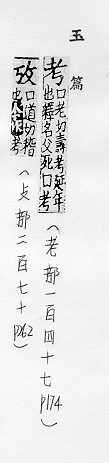 玉篇
考口老切壽考延年
也釋名父死曰考
(老部一百四十七 p174)
攷口道切稽
也考
(攴部二百七十 p262)